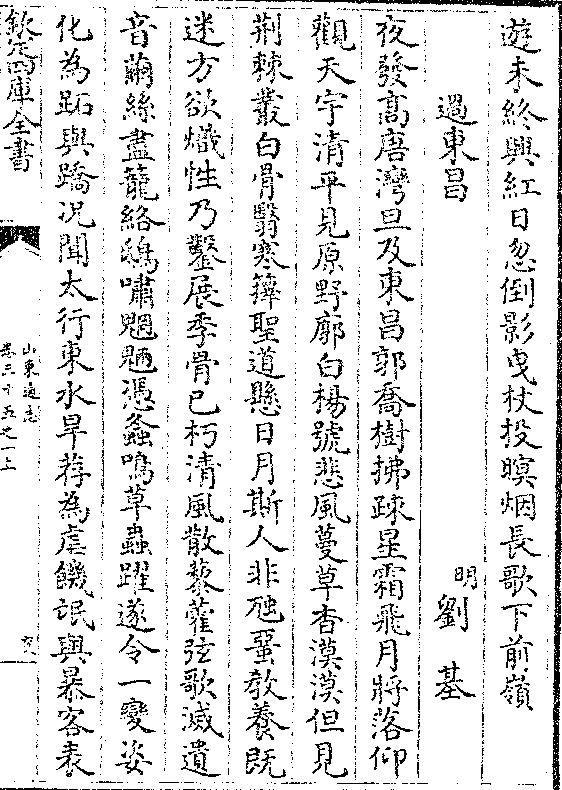 遊未終興紅日忽倒影曳杖投暝烟長歌下前嶺
過東昌
明劉基
夜發高唐灣旦及東昌郭喬樹拂疎星霜飛月將落仰
觀天宇清平見原野廓白楊號悲風蔓草杳漠漠但見
荆棘叢白骨翳寒籜聖道懸日月斯人非砲蠒教養既
迷方欲熾性乃鑿展季骨已朽清風散藜藿弦歌滅遺
音繭絲盡籠絡鴟嘯魍魎憑螽鳴草蟲躍遂令一變姿
化為跖與蹻况聞太行東水旱荐為虐饑氓與暴客表
欽定四庫全書
山東通志
卷三十五之一上